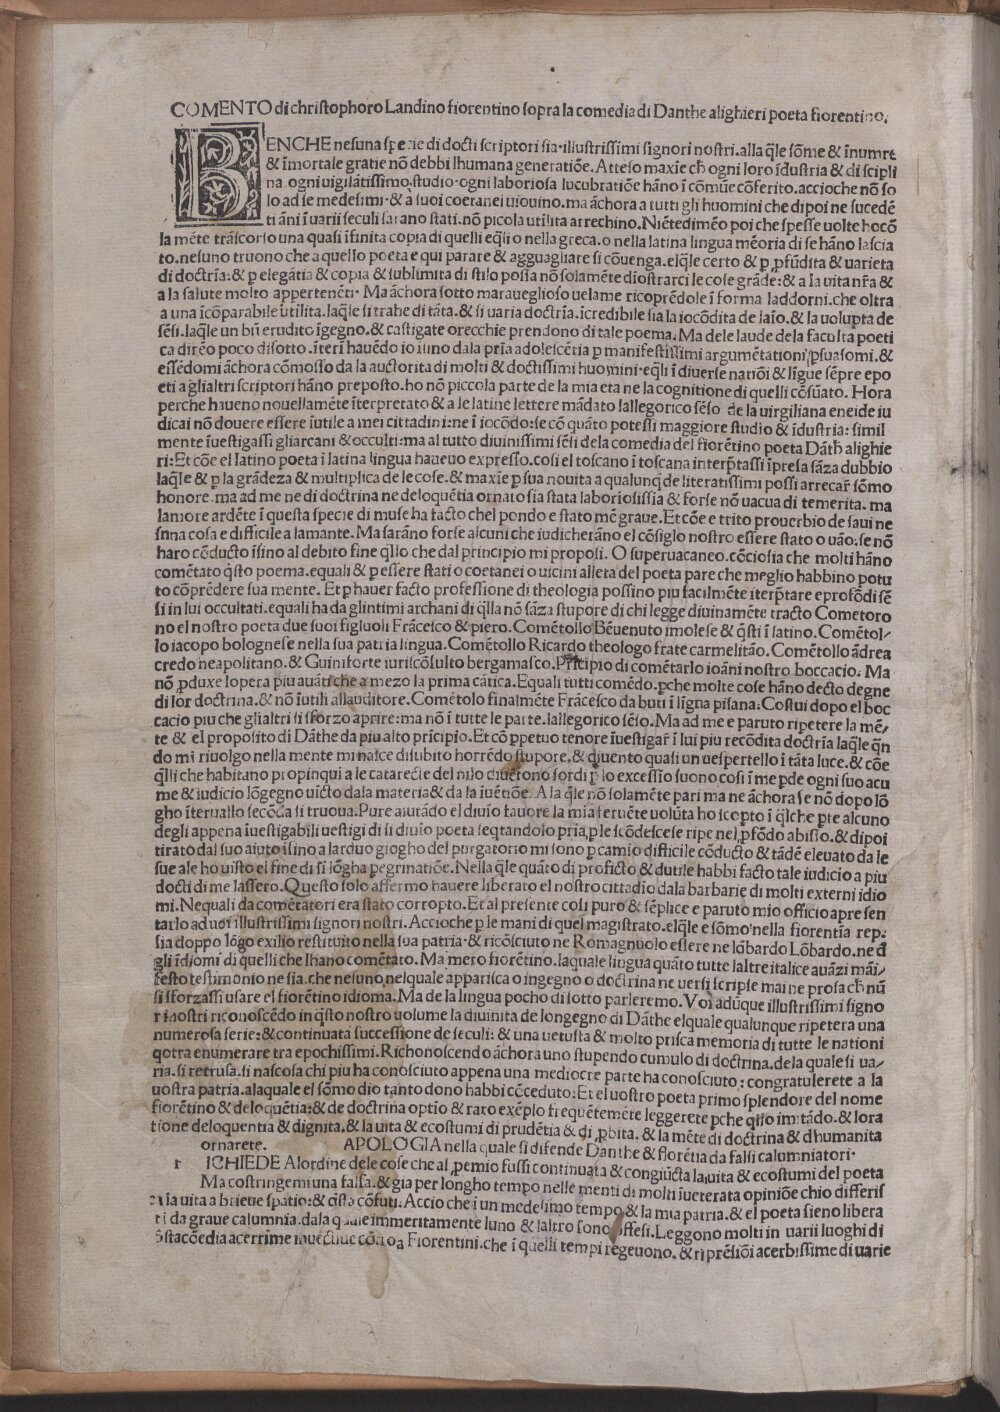 COMENTO di christophoro Landino fiorentino sopra la comedia di Danthe alighieri poeta fiorentino.
BENCHE nesuna specie di docti scriptori sia·illustrissimi signori nostri.alla q̃le sõme & ĩnumre
& ĩmortale gratie nõ debbi lhumana generatiõe.Atteso maxĩe ch̃ ogni loro ĩdustria & di scipli
na ogni uigilãtissimo studio·ogni laboriosa lucubratiõe hãno ĩ cõmũe cõferito.accioche nõ so
lo ad se medesimi·& a suoi coetanei uiouino.ma ãchora a tutti gli huomini che dipoi ne sucedẽ
ti ãni ĩ uarii seculi sarano stati.nõ picola utilita arrechino.Niẽtedimẽo poi che spesse uolte hocõ
la mẽte trãscorso una quasi ĩfinita copia di quelli eq̃li o nella greca.o nella latina lingua mẽoria di se hãno lascia
to.nesuno truono che a questo poeta e qui parare & agguagliare si cõuenga.elq̃le certo & ꝑ ꝓfũdita & uarieta
di doctrĩa:& ꝑ elegãtia & copia & sublimita di stilo possa nõ solamẽte diostrarci le cose grãde:& a la uita nr̃a &
a la salute molto appertenẽti· Ma ãchora sotto marauegliosо uelame ricoprẽdole ĩ forma laddorni.che oltra
a una ĩcõparabile utilita.laq̃le si trahe di tãta.& si uaria doctrĩa.ĩcredibile sia la iocõdita de laĩo.& la uolupta de
sẽsi.laq̃le un bũ erudito ĩgegno.& castigate orecchie prendono di tale poema.Ma dele laude dela faculta poeti
ca dirẽo poco disotto.ĩterĩ hauẽdo io isino dala prĩa adolescẽtia ꝑ manifestissimi argumẽtationi ꝑsuasomi.&
essẽdomi ãchora cõmosso da la auctorita di molti & doctissimi huomini·eq̃li ĩ diuerse natiõi & lĩgue sẽpre epo
eti aglialtri scriptori hãno preposto.ho nõ piccola parte de la mia eta ne la cognitione di quelli cõsũato. Hora
perche haueno nouellamẽte ĩterpretato & a le latine lettere mãdato lallegorico sẽso de la uirgiliana eneide iu
dicai nõ douere essere ĩutile a mei cittadini:ne ĩ iocõdo:se cõ quãto potessi maggiore studio & ĩdustria: simil
mente ĩuestigassi gliarcani & occulti:ma al tutto diuinissimi sẽsi dela comedia del fiorẽtino poeta Dãth̃ alighie
ri:Et cõe el latino poeta ĩ latina lingua haueuo expresso.cosi el toscano ĩ toscana interp̃tassi ĩpresa sãza dubbio
laq̃le & ꝑ la grãdeza & multiplica de le cose.& maxĩe ꝑ sua nouita a qualunq̃ de literatissimi possi arrecar̃ sõmo
honore.ma ad me ne di doctrina ne deloquẽtia ornato sia stata laboriosissia & forse nõ uacua di temerita. ma
lamore ardẽte ĩ questa specie di muse ha facto chel pondo e stato mẽ graue.Et cõe e trito prouerbio de saui ne
snna cosa e difficile a lamante. Ma sarãno forse alcuni che iudicherãno el cõsiglo nostro essere stato o uão.se nõ
haro cõducto ĩsino al debito fine q̃llo che dal principio mi proposi. O superuacaneo.cõciosia che molti hãno
comẽtato q̃sto poema.equali & ꝑ essere stati o coetanei o uicini alleta del poeta pare che meglio habbino potu
to cõprẽdere sua mente. Et ꝑ hauer facto professione di theologia possino piu facilmẽte iterp̃tare eprofõdi sẽ
si in lui occultati.equali ha da glintimi archani di q̃lla nõ sãza stupore di chi legge diuinamẽte tracto Cometoro
no el nostro poeta due suoi figluoli Frãcesco & piero. Comẽtollo Bẽuenuto imolese & q̃sti ĩ latino. Comẽtol⸗
lo iacopo bolognese nella sua patria lingua.Comẽtollo Ricardo theologo frate carmelitão.Comẽtollo ãdrea
credo neapolitano.& Guiniforte iuriscõsulto bergamasco.Prĩcipio di comẽtarlo ioãni nostro boccacio. Ma
nõ ꝓduxe lopera piu auãti che a mezo la prima cãtica.Equali tutti comẽdo.ꝑche molte cose hãno decto degne
di lor doctrina.& nõ ĩutili allauditore.Comẽtolo finalmẽte Frãcesco da buti ĩ ligna pisana:Costui dopo el boc
cacio piu che glialtri si sforzo aprire:ma nõ ĩ tutte le parte.lallegorico sẽso.Ma ad me e paruto ripetere la mẽ⸗
te & el proposito di Dãthe da piu alto prĩcipio.Et cõ ꝑpetuo tenore ĩuestigar̃ ĩ lui piu recõdita doctrĩa laq̃le q̃n
do mi riuolgo nella mente mi nasce disubito horrẽdo stupore.& diuento quasi un uespertello ĩ tãta luce.& cõe
q̃lli che habitano propinqui a le catarecte del nilo diuẽtono sordi ꝑ lo excessĩo suono cosi ĩ me ꝑde ogni suo acu
me & iudicio lõgegno uĩcto dala materia & da la iuẽtiõe. A la q̃le nõ solamẽte pari ma ne ãchora se nõ dopo lõ
gho ĩteruallo secõda si truoua.Pure aiutãdo el diuĩo fauore la mia feruẽte uolũta ho iscopto ĩ q̃lche pte alcuno
degli appena ĩuestigabili uestigi di si diuĩo poeta seqtandolo prĩa ꝑ le scõdescese ripe nel ꝓfõdo abisso.& dipoi
tirato dal suo aiuto ĩsino a larduo giogho del purgatorio mi sono ꝑ camĩo difficile cõducto & tãdẽ eleuato da le
sue ale ho uisto el fine di sĩ lõgha pegrinatiõe.Nella q̃le quãto di proficto & dutile habbi facto tale iudicio a piu
docti di me lassero.Questo solo affermo hauere liberato el nostro cittadĩo dala barbarie di molti externi idio
mi.Nequali da comẽtatori era stato corropto.Et al presente cosi puro & sẽplice e paruto mio officio apresen
tarlo ad uoi illustrissimi signori nostri.Accioche ꝑ le mani di quel magistrato.elq̃le e sõmo nella fiorentĩa rep.
sia doppo lõgo exilio restituito nella sua patria·& ricõsciuto ne Romagnuolo essere ne lõbardo Lõbardo.ne d
gli ĩdiomi di quelli che lhano comẽtato. Ma mero fiorẽtino.laquale lingua quãto tutte laltre italice auãzi mãi⸗
festo testimonio ne sia.che nesuno nelquale apparisca o ingegno o doctrina ne uersi scripse mai ne prosa ch̃ nũ
si sforzassi usare el fiorẽtino idioma.Ma de la lingua pocho di sotto parleremo. Voi adũque illustrissimi signo
ri nostri riconoscẽdo in q̃sto nostro uolume la diuinita de longegno di Dãthe elquale qualunque ripetera una
numerosa serie:& continuata successione de seculi:& una uetusta & molto prisca memoria di tutte le nationi
qotra enumerare tra epochissimi.Richonoscendo ãchora uno stupendo cumulo di doctrina.dela quale si ua⸗
ria.si retrusa.si nascosa chi piu ha conosciuto appena una mediocre parte ha conosciuto:congratulerete a la
uostra patria.alaquale el sõmo dio tanto dono habbi cẽceduto:Et el uostro poeta primo splendore del nome
fiorẽtino & deloquẽtia:& de doctrina optĩo & raro exẽplo frequẽtemẽte leggerete ꝑche q̃llo imitãdo.& lora
tione deloquentia & dignita.& la uita & ecostumi di prudẽtia & di ꝓbita.& la mẽte di doctrina & dhumanita
ornarete. APOLOGIA nella quale si difende Danthe & florẽtia da falsi calumniatori·
r ICHIEDE Alordine dele cose che al ꝓemio fussi continuata & congiũcta la uita & ecostumi del poeta
Ma costringemi una falsa.& gia per longho tempo nelle menti di molti ĩueterata opiniõe chio differis
ci la uita a brieue spatio:& q̃sta cõfuti.Accio che ĩ un medesimo tempo & la mia patria.& el poeta sieno libera
ti da graue calumnia.dala quale immeritamente luno & laltro sono offesi.Leggono molti in uarii luoghi di
q̃sta cõedia acerrime inuectiue cõtro a Fiorentini.che ĩ quelli tempi regeuono.& riprẽsiõi acerbissime di uarie